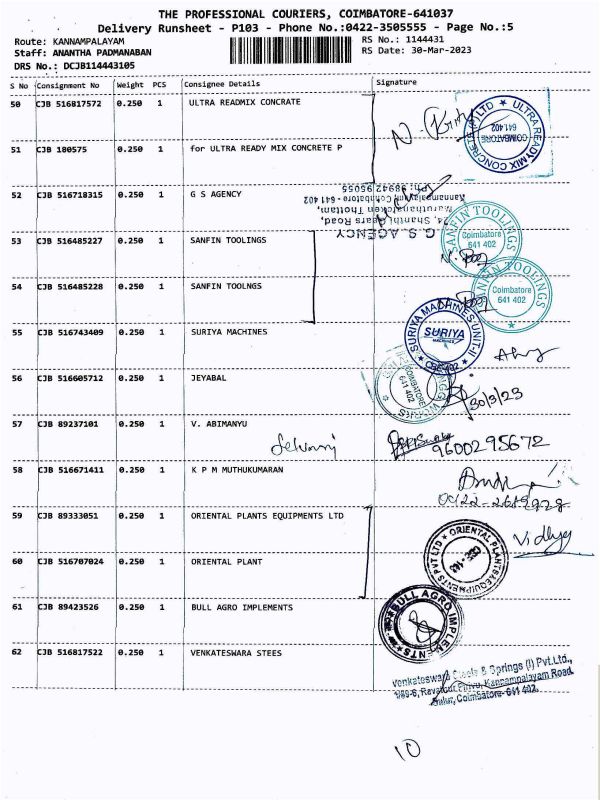 THE PROFESSIONAL COURIERS, COIMBATORE-641037
Delivery Runsheet - P103 - Phone No.:0422-3505555 - Page No.:5
Route: KANNAMPALAYAM
RS No.: 1144431
Staff: ANANTHA PADMANABAN
RS Date: 30-Mar-2023
DRS No.: DCJB114443105
S No Consignment No Weight PCS Consignee Details Signature
50 CJB 516817572 0.250 1 ULTRA READMIX CONCRETE
ULTRA READYMIX CONCRETE (P) LTD
COIMBATORE
641 402
51 CJB 180575 0.250 1 for ULTRA READY MIX CONCRETE P
52 CJB 516718315 0.250 1 G S AGENCY
G.S. AGENCY
53 CJB 516485227 0.250 1 SANFIN TOOLINGS
SANFIN TOOLINGS
Coimbatore
641 402
54 CJB 516485228 0.250 1 SANFIN TOOLNGS
SANFIN TOOLINGS
Coimbatore
641 402
55 CJB 516743409 0.250 1 SURIYA MACHINES
SURIYA MACHINES UNIT-II
SURIYA
MACHINES
CBE-402
56 CJB 516605712 0.250 1 JEYABAL
COIMBATORE
641 402
30/3/23
57 CJB 89237101 0.250 1 V. ABIMANYU
9600295672
58 CJB 516671411 0.250 1 K P M MUTHUKUMARAN
0422-2689928
59 CJB 89333051 0.250 1 ORIENTAL PLANTS EQUIPMENTS LTD
Vidhya
ORIENTAL PLANTS & EQUIPMENTS PVT LTD
60 CJB 516707024 0.250 1 ORIENTAL PLANT
61 CJB 89423526 0.250 1 BULL AGRO IMPLEMENTS
BULL AGRO IMPLEMENTS
62 CJB 516817522 0.250 1 VENKATESWARA STEES
Venkateswara Steels & Springs (I) Pvt.Ltd.,
Kannampalayam Road,
Sulur, Coimbatore- 641 402.
10